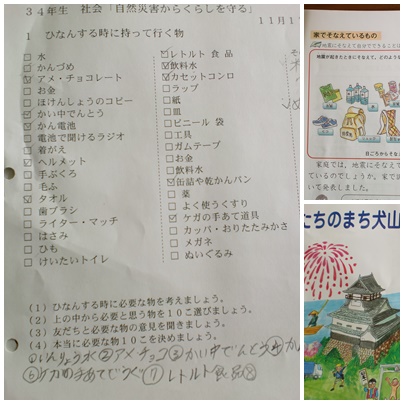 34年生 社会「自然災害からくらしを守る」
11月1
1 ひなんする時に持って行く物
□ 水
□ かんづめ
☑ アメ・チョコレート
□ お金
□ ほけんしょうのコピー
☑ かい中でんとう
☑ かん電池
□ 電池で聞けるラジオ
□ 着がえ
☑ ヘルメット
□ 手ぶくろ
□ 毛ふ
☑ タオル
□ 歯ブラシ
□ ライター・マッチ
□ はさみ
□ ひも
□ けいたいトイレ
☑ レトルト食品
☑ 飲料水
☑ カセットコンロ
□ ラップ
□ 紙
□ 皿
□ ビニール袋
□ 工具
□ ガムテープ
□ お金
□ 飲料水
☑ 缶詰や乾かんパン
□ 薬
□ よく使うくすり
☑ ケガの手あて道具
□ カッパ・おりたたみかさ
□ メガネ
□ ぬいぐるみ
(1) ひなんする時に必要な物を考えましょう。
(2) 上の中から必要と思う物を10こ選びましょう。
(3) 友だちと必要な物の意見を聞きましょう。
(4) 本当に必要な物10こを決めましょう。
①いんりょう水②アメチョコ③かい中でんとう④か
⑥ケガの手あてどうぐ⑦レトルト食品⑧
家でそなえているもの
地震が起きたときにそなえて、どのような
日ごろからそな
家庭では、地震にそなえて
ているのでしょうか。家で
いて発表しました。
たちのまち犬山